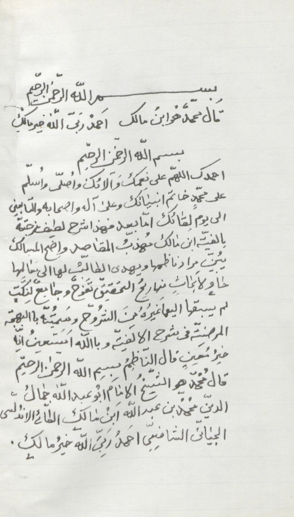 بسم الله الرحمن الرحيم
قال محمد هو ابن مالك احمد ربي الله خير مالك
بسم الله الرحمن الرحيم
احمدك اللهم على نعمك وآلائك واصلي واسلم
على محمد خاتم انبيائك وعلى آله واصحابه والتابعين
الى يوم لقائك اما بعد فهذا شرح لطيف مزجته
بالفية ابن مالك مهذب المقاصد واضح المسالك
يبين مراد ناظمها ويهدي الطالب لها الى معالمها
حاو لابحاث منها ريح التحقيق تفوح وجامع لنكت
لم يسبقه اليها غيره من الشروح وسميته بالبهجة
المرضية في شرح الالفية وبالله استعين انه
خير معين قال الناظم بسم الله الرحمن الرحيم
قال محمد هو الشيخ الامام ابو عبد الله جمال
الدين محمد بن عبد الله ابن مالك الطائي الاندلسي
الجياني الشافعي احمد ربي الله خير مالك.